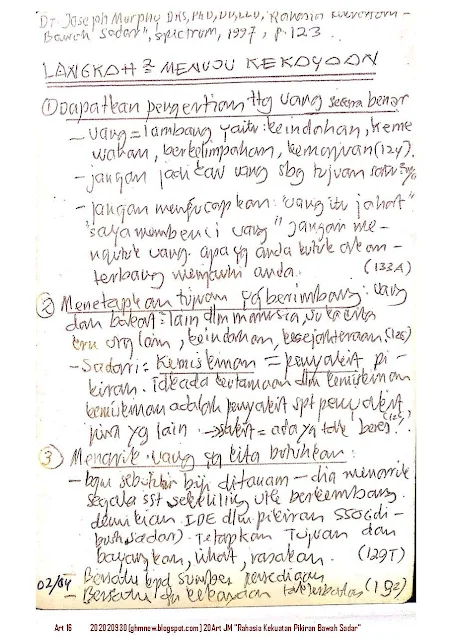 Dr. Joseph Murphy DRS, PhD, DD, LLD, "Rahasia Kekuatan
Bawah Sadar", Spectrum, 1997, p.123
LANGKAH2 MENUJU KEKAYAAN
① Dapatkan pengertian ttg uang secara benar
- uang = lambang yaitu: keindahan, keme
wahan, berkelimpahan, kemajuan (124).
- jangan jadikan uang sbg tujuan satu2nya
- jangan mengucapkan: "uang itu jahat"
"saya membenci uang" jangan me-
ngutuk uang. apa yg anda kutuk akan -
terbang menjauhi anda. (133A)
② Menetapkan tujuan yg berimbang: uang
dan bakat2 lain dlm manusia,
org lain, keindahan, kesejahteraan. (125)
- Sadari: Kemiskinan = penyakit pi-
kiran. Tdk ada keutamaan dlm kemiskinan
kemiskinan adalah penyakit spt penyakit
jiwa yg lain → sakit = ada yg tdk beres.
③ Menarik uang yg kita butuhkan:
- bgm sebutir biji ditanam - dia menarik
segala sst sekeliling utk berkembang.
demikian IDE dlm pikiran SSO (di-
bwh sadar). Tetapkan Tujuan dan
bayangkan, lihat, rasakan. (129T)
02/04 - Bersatu kpd sumber persediaan
- Bersatu dg kekayaan tak terbatas (192)
Art 16 2020 20930 [ghmnew.blogspot.com] 20Art JM "Rahasia Kekuatan Pikiran Bawah Sadar"